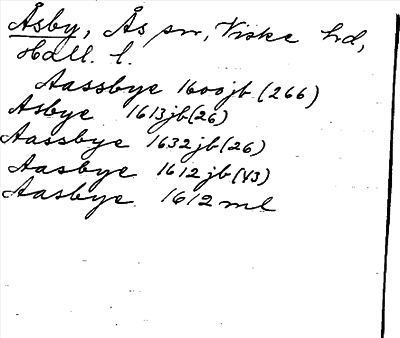 Åsby, Ås sn, Viske hd,
Hall. l.
Aassbye 1600jb (266)
Asbye 1613jb (26)
Aassbye 1632jb (26)
Aasbye 1612jb (43)
Aasbye 1612 ml